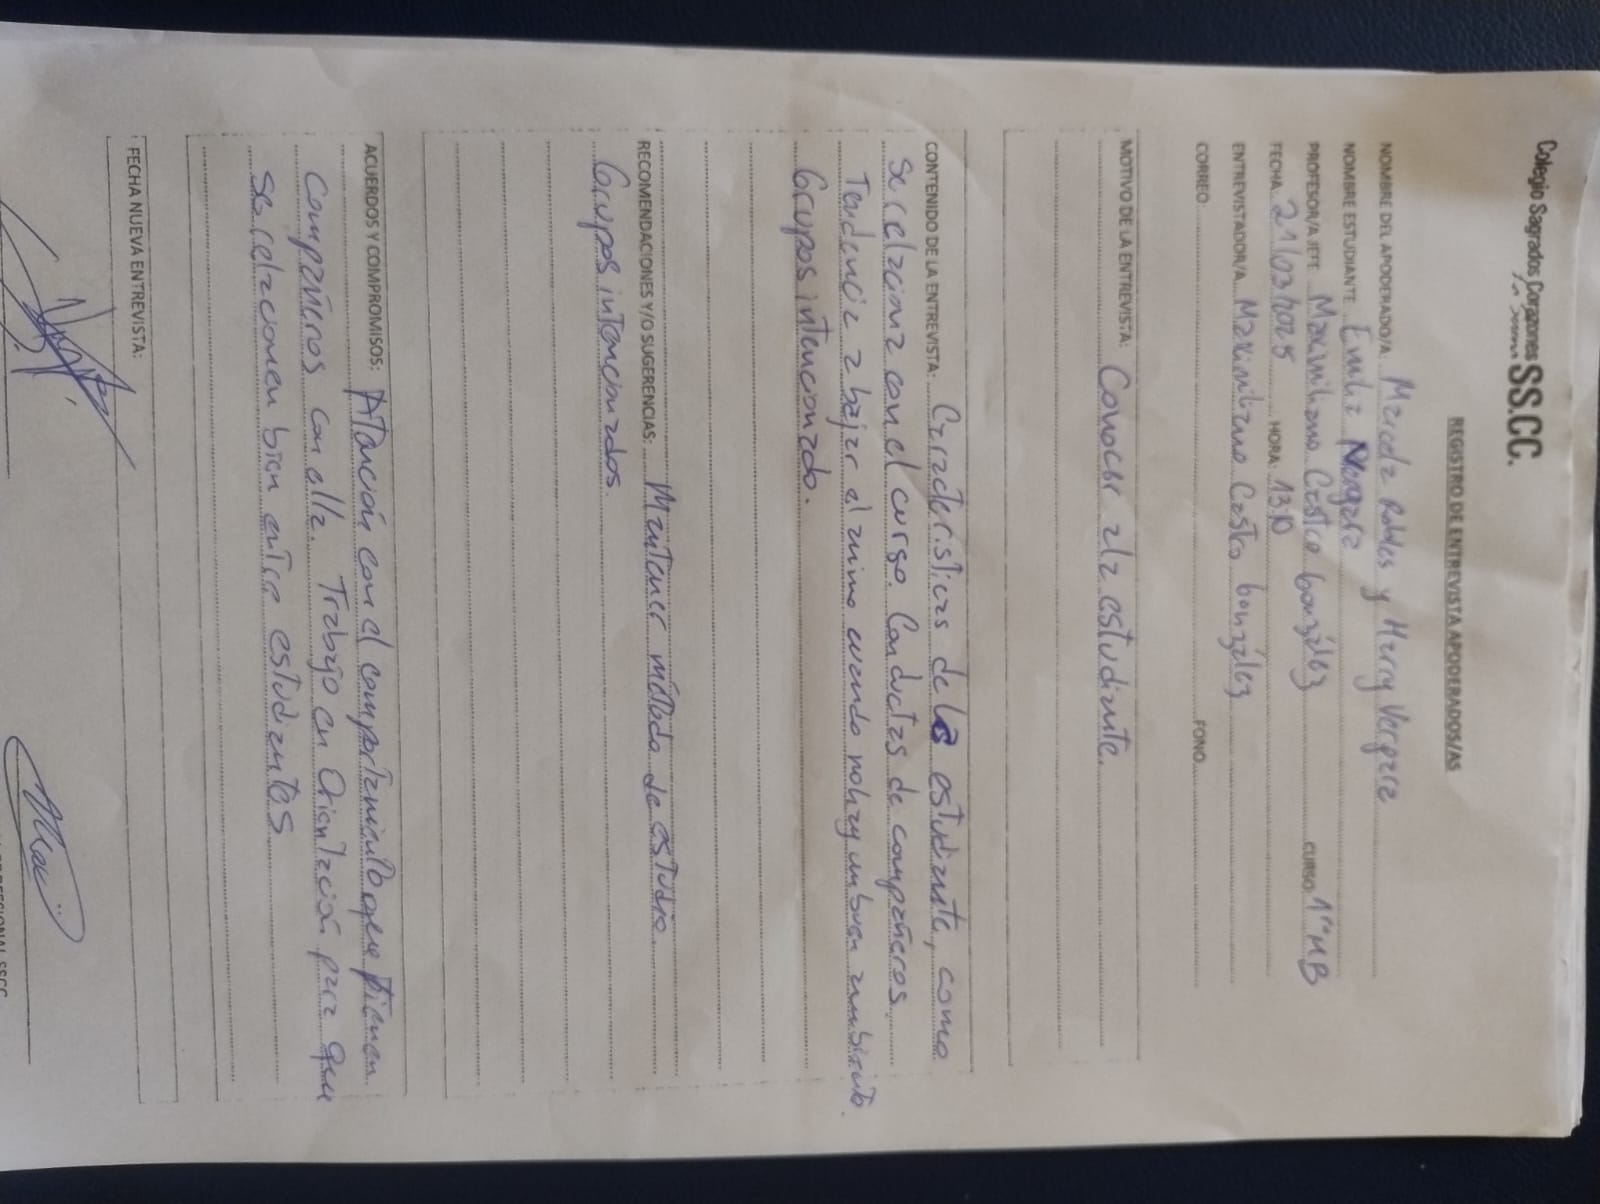 Colegio Sagrados Corazones SS.CC.
REGISTRO DE ENTREVISTA APODERADOS/AS
NOMBRE DEL APODERADO/A Mercedz Robles y Harry Vergara
NOMBRE ESTUDIANTE Emilia
PROFESOR/A JEFE Maximiliano Castro González CURSO 1ºMB
FECHA 21/03/2025 HORA: 13:10
ENTREVISTADOR/A Maximiliano Castro González
CORREO FONO
MOTIVO DE LA ENTREVISTA: Conocer a la estudiante.
CONTENIDO DE LA ENTREVISTA: Características de la estudiante, como
se relaciona con el curso. Conductas de compañeros.
Tendencia a bajar el animo cuando no hay un buen ambiente.
Grupos intencionado.
RECOMENDACIONES Y/O SUGERENCIAS: Mantener método de estudio.
Grupos intencionados.
ACUERDOS Y COMPROMISOS: Atención con el comportamiento que tienen
compañeros con ella. Trabajo en Orientación para que
se relacionen bien entre estudiantes
FECHA NUEVA ENTREVISTA: